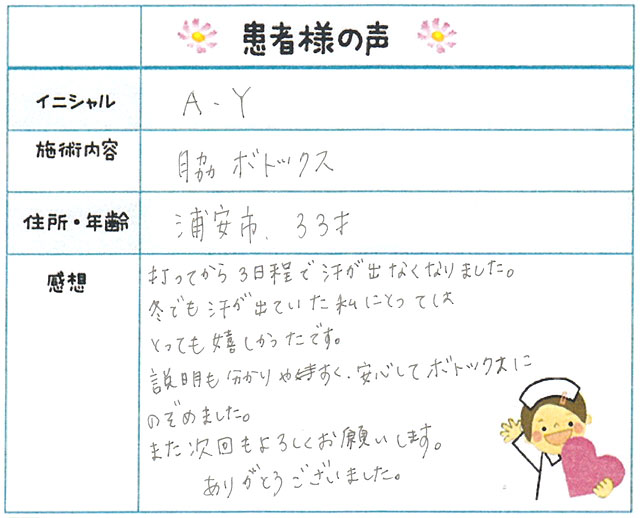 患者様の声
イニシャル A.Y
施術内容 脇ボトックス
住所・年齢 浦安市、33才
感想
打ってから3日程で汗が出なくなりました。
冬でも汗が出ていた私にとっては
とっても嬉しかったです。
説明も分かりやすく、安心してボトックスに
のぞめました。
また次回もよろしくお願いします。
ありがとうございました。